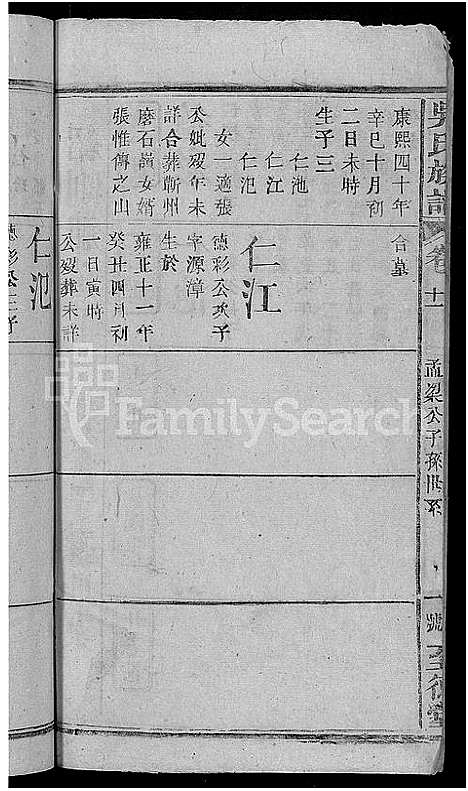 吳氏族譜
卷十一
孟梁公子孫世系
一號
至德堂
康熙四十年
辛巳十月初
二日未時
生子三
仁池
仁江
仁氾
女一適張
公妣歿年未
詳合葬衡州
磨石嶺女婿
張惟傳之山
合墓
仁江
德彩公次子
字源漳
生於
雍正十一年
癸丑四月初
一日寅時
公歿葬未詳
仁氾
德彩公三子
FamilySearch